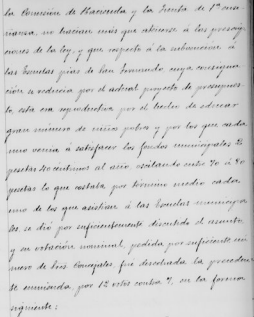 la Comisión de Hacienda y la Junta de 1ª ense-
ñanza, no hacían más que atenerse á los prescrip-
ciones de la ley, y que respecto á la subvención á
las Escuelas pías de San Fernando, cuya consigna-
ción se reducía por el actual proyecto de presupues-
to, esta era reproductiva por el hecho de educar
gran número de niños pobres y por los que cada
uno venía á satisfacer los fondos municipales 2
pesetas 40 céntimos al año, oscilando entre 70 á 80
pesetas lo que costaba por término medio cada
uno de los que asistían á las Escuelas municipa-
les se dió por suficientemente discutido el asunto,
y en votación nominal, pedida por suficiente nú-
mero de Sres Concejales, fué desechada la preceden-
te enmienda por 12 votos contra 7, en la forma
siguiente: